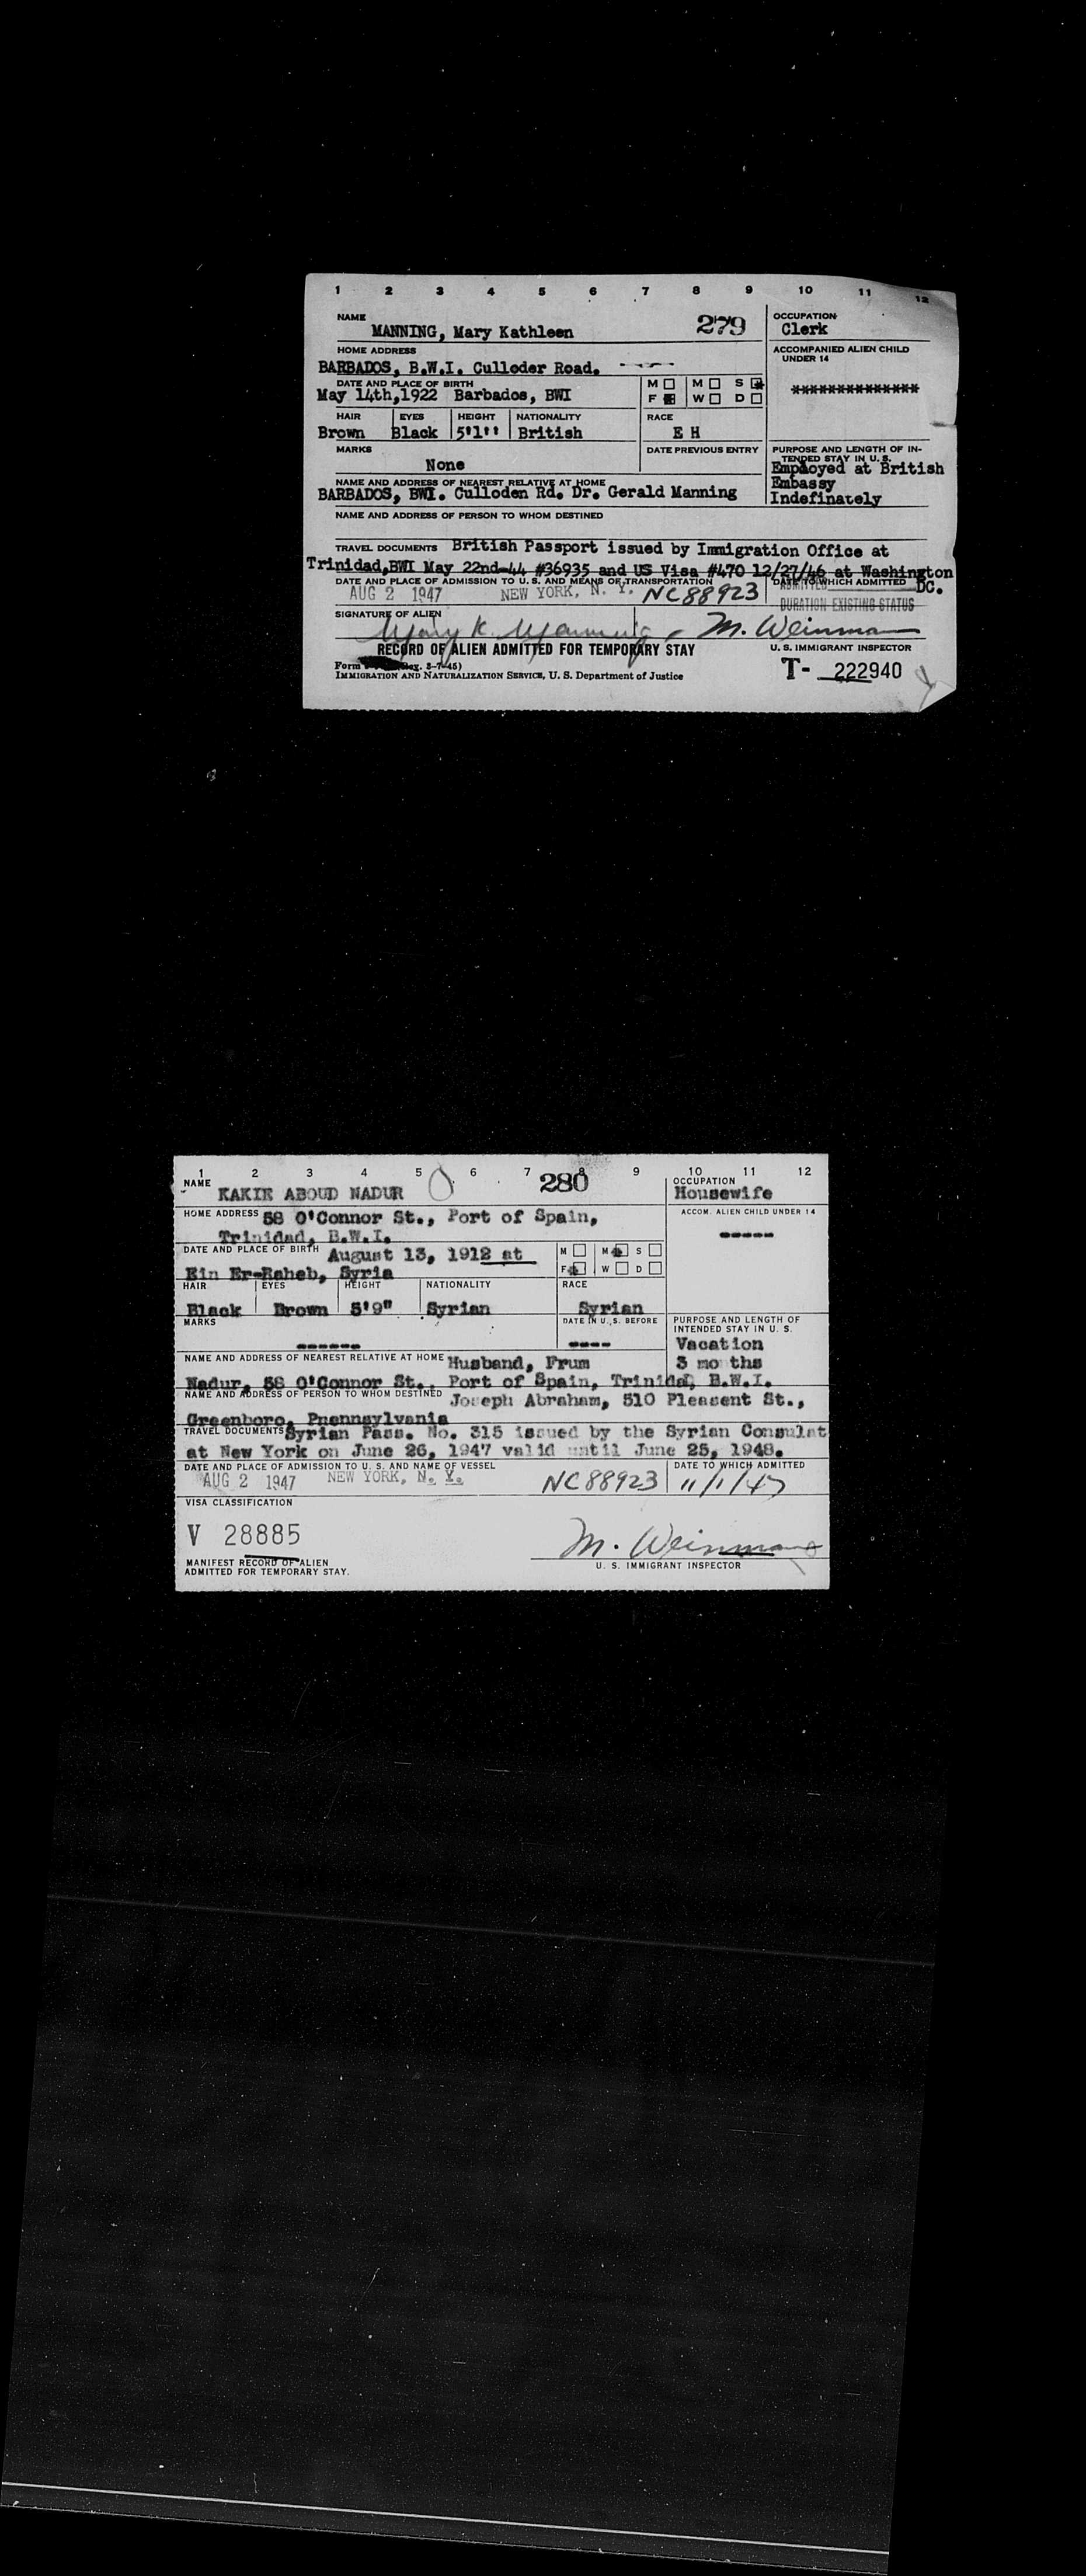 1 2 3 4 5 6 7 8 9 10 11 12
NAME
MANNING, Mary Kathleen 279
OCCUPATION
Clerk
HOME ADDRESS
BARBADOS, B.W.I. Culloder Road.
ACCOMPANIED ALIEN CHILD
UNDER 14
*************
DATE AND PLACE OF BIRTH
May 14th,1922 Barbados, BWI
M M S
F W D
HAIR EYES HEIGHT NATIONALITY RACE
Brown Black 5'1'' British E H
MARKS
None
DATE PREVIOUS ENTRY
PURPOSE AND LENGTH OF IN-
TENDED STAY IN U. S.
Employed at British
Embassy
Indefinately
NAME AND ADDRESS OF NEAREST RELATIVE AT HOME
BARBADOS, BWI. Culloden Rd. Dr. Gerald Manning
NAME AND ADDRESS OF PERSON TO WHOM DESTINED
TRAVEL DOCUMENTS British Passport issued by Immigration Office at
Trinidad,BWI May 22nd-44 #36935 and US Visa #470 12/27/46 at Washington
DC.
DATE AND PLACE OF ADMISSION TO U. S. AND MEANS OF TRANSPORTATION
DATE TO WHICH ADMITTED
AUG 2 1947 NEW YORK, N. Y. NC88923
ADMITTED
DURATION EXISTING STATUS
SIGNATURE OF ALIEN
Mary K. Manning M. Weinman
RECORD OF ALIEN ADMITTED FOR TEMPORARY STAY
U. S. IMMIGRANT INSPECTOR
Form (Rev. 3-7-45)
IMMIGRATION AND NATURALIZATION SERVICE, U. S. Department of Justice
T- 222940
1 2 3 4 5 6 7 8 9 10 11 12
NAME
KAKIE ABOUD NADUR 280
OCCUPATION
Housewife
HOME ADDRESS 58 O'Connor St., Port of Spain,
Trinidad, B.W.I.
ACCOM. ALIEN CHILD UNDER 14
-----
DATE AND PLACE OF BIRTH August 13, 1912 at
Ein Er-Raheb, Syria
M M S
F W D
HAIR EYES HEIGHT NATIONALITY RACE
Black Brown 5'9" Syrian Syrian
MARKS
------
DATE IN U. S. BEFORE
----
PURPOSE AND LENGTH OF
INTENDED STAY IN U. S.
Vacation
3 mo ths
NAME AND ADDRESS OF NEAREST RELATIVE AT HOME Husband, Frum
Nadur, 58 O'Connor St., Port of Spain, Trinidad, B.W.I.
NAME AND ADDRESS OF PERSON TO WHOM DESTINED Joseph Abraham, 510 Pleasent St.,
Greenboro, Pnennsylvania
TRAVEL DOCUMENTS Syrian Pass. No. 315 issued by the Syrian Consulat
at New York on June 26, 1947 valid until June 25, 1948.
DATE AND PLACE OF ADMISSION TO U. S. AND NAME OF VESSEL
DATE TO WHICH ADMITTED
AUG 2 1947 NEW YORK, N. Y. NC88923 11/1/47
VISA CLASSIFICATION
V 28885
M. Weinman
MANIFEST RECORD OF ALIEN
ADMITTED FOR TEMPORARY STAY.
U. S. IMMIGRANT INSPECTOR